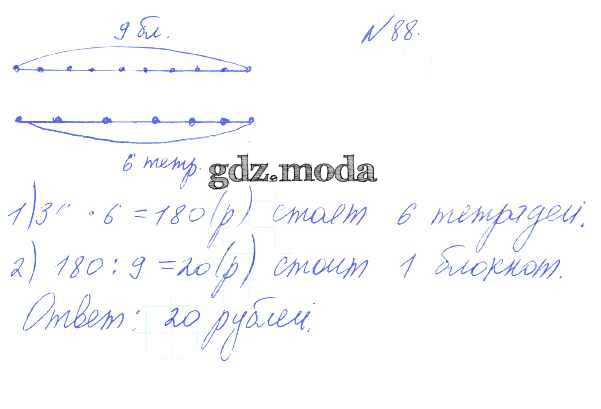 9 бл.
№88.
6 тетр.
gdz.moda
1) · 6 = 180 (р) стоят 6 тетрадей.
2) 180 : 9 = 20 (р) стоит 1 блокнот.
Ответ: 20 рублей.